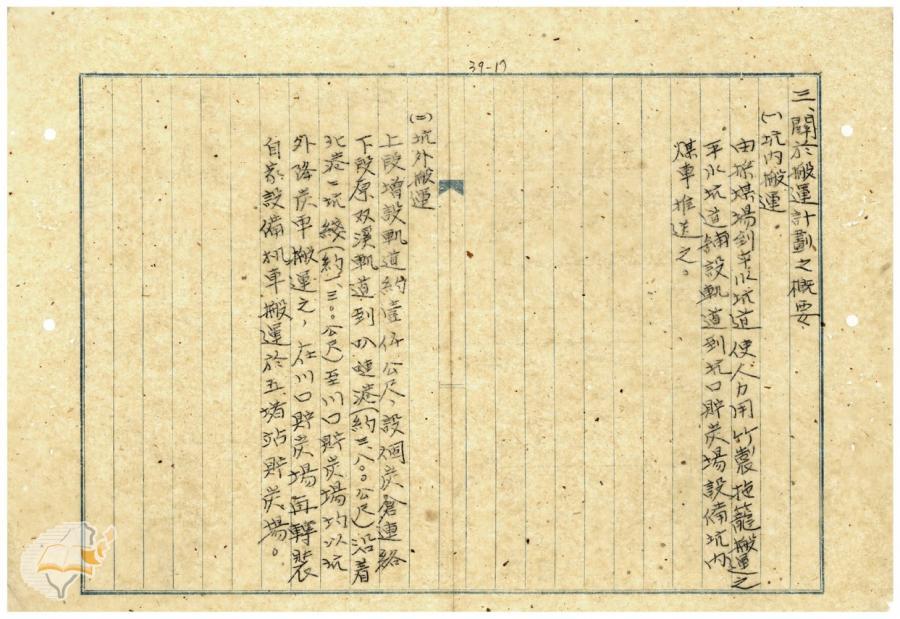 39-17
三、關於搬運計劃之概要
(一)坑內搬運
由採煤場到平水坑道使人力用竹製拖籠搬運之
平水坑道鋪設軌道到坑口貯炭場設備坑內
煤車推送之。
(二)坑外搬運
上段增設軌道約壹仟公尺,設個炭倉連絡
下段原双溪軌道到叭嗹港(約三、八〇〇公尺)沿着
北港二坑綫(約一、三〇〇公尺)至川口貯炭場均以坑
外降炭車搬運之,在川口貯炭場再轉裝
自家設備机車搬運於五堵站貯炭場。